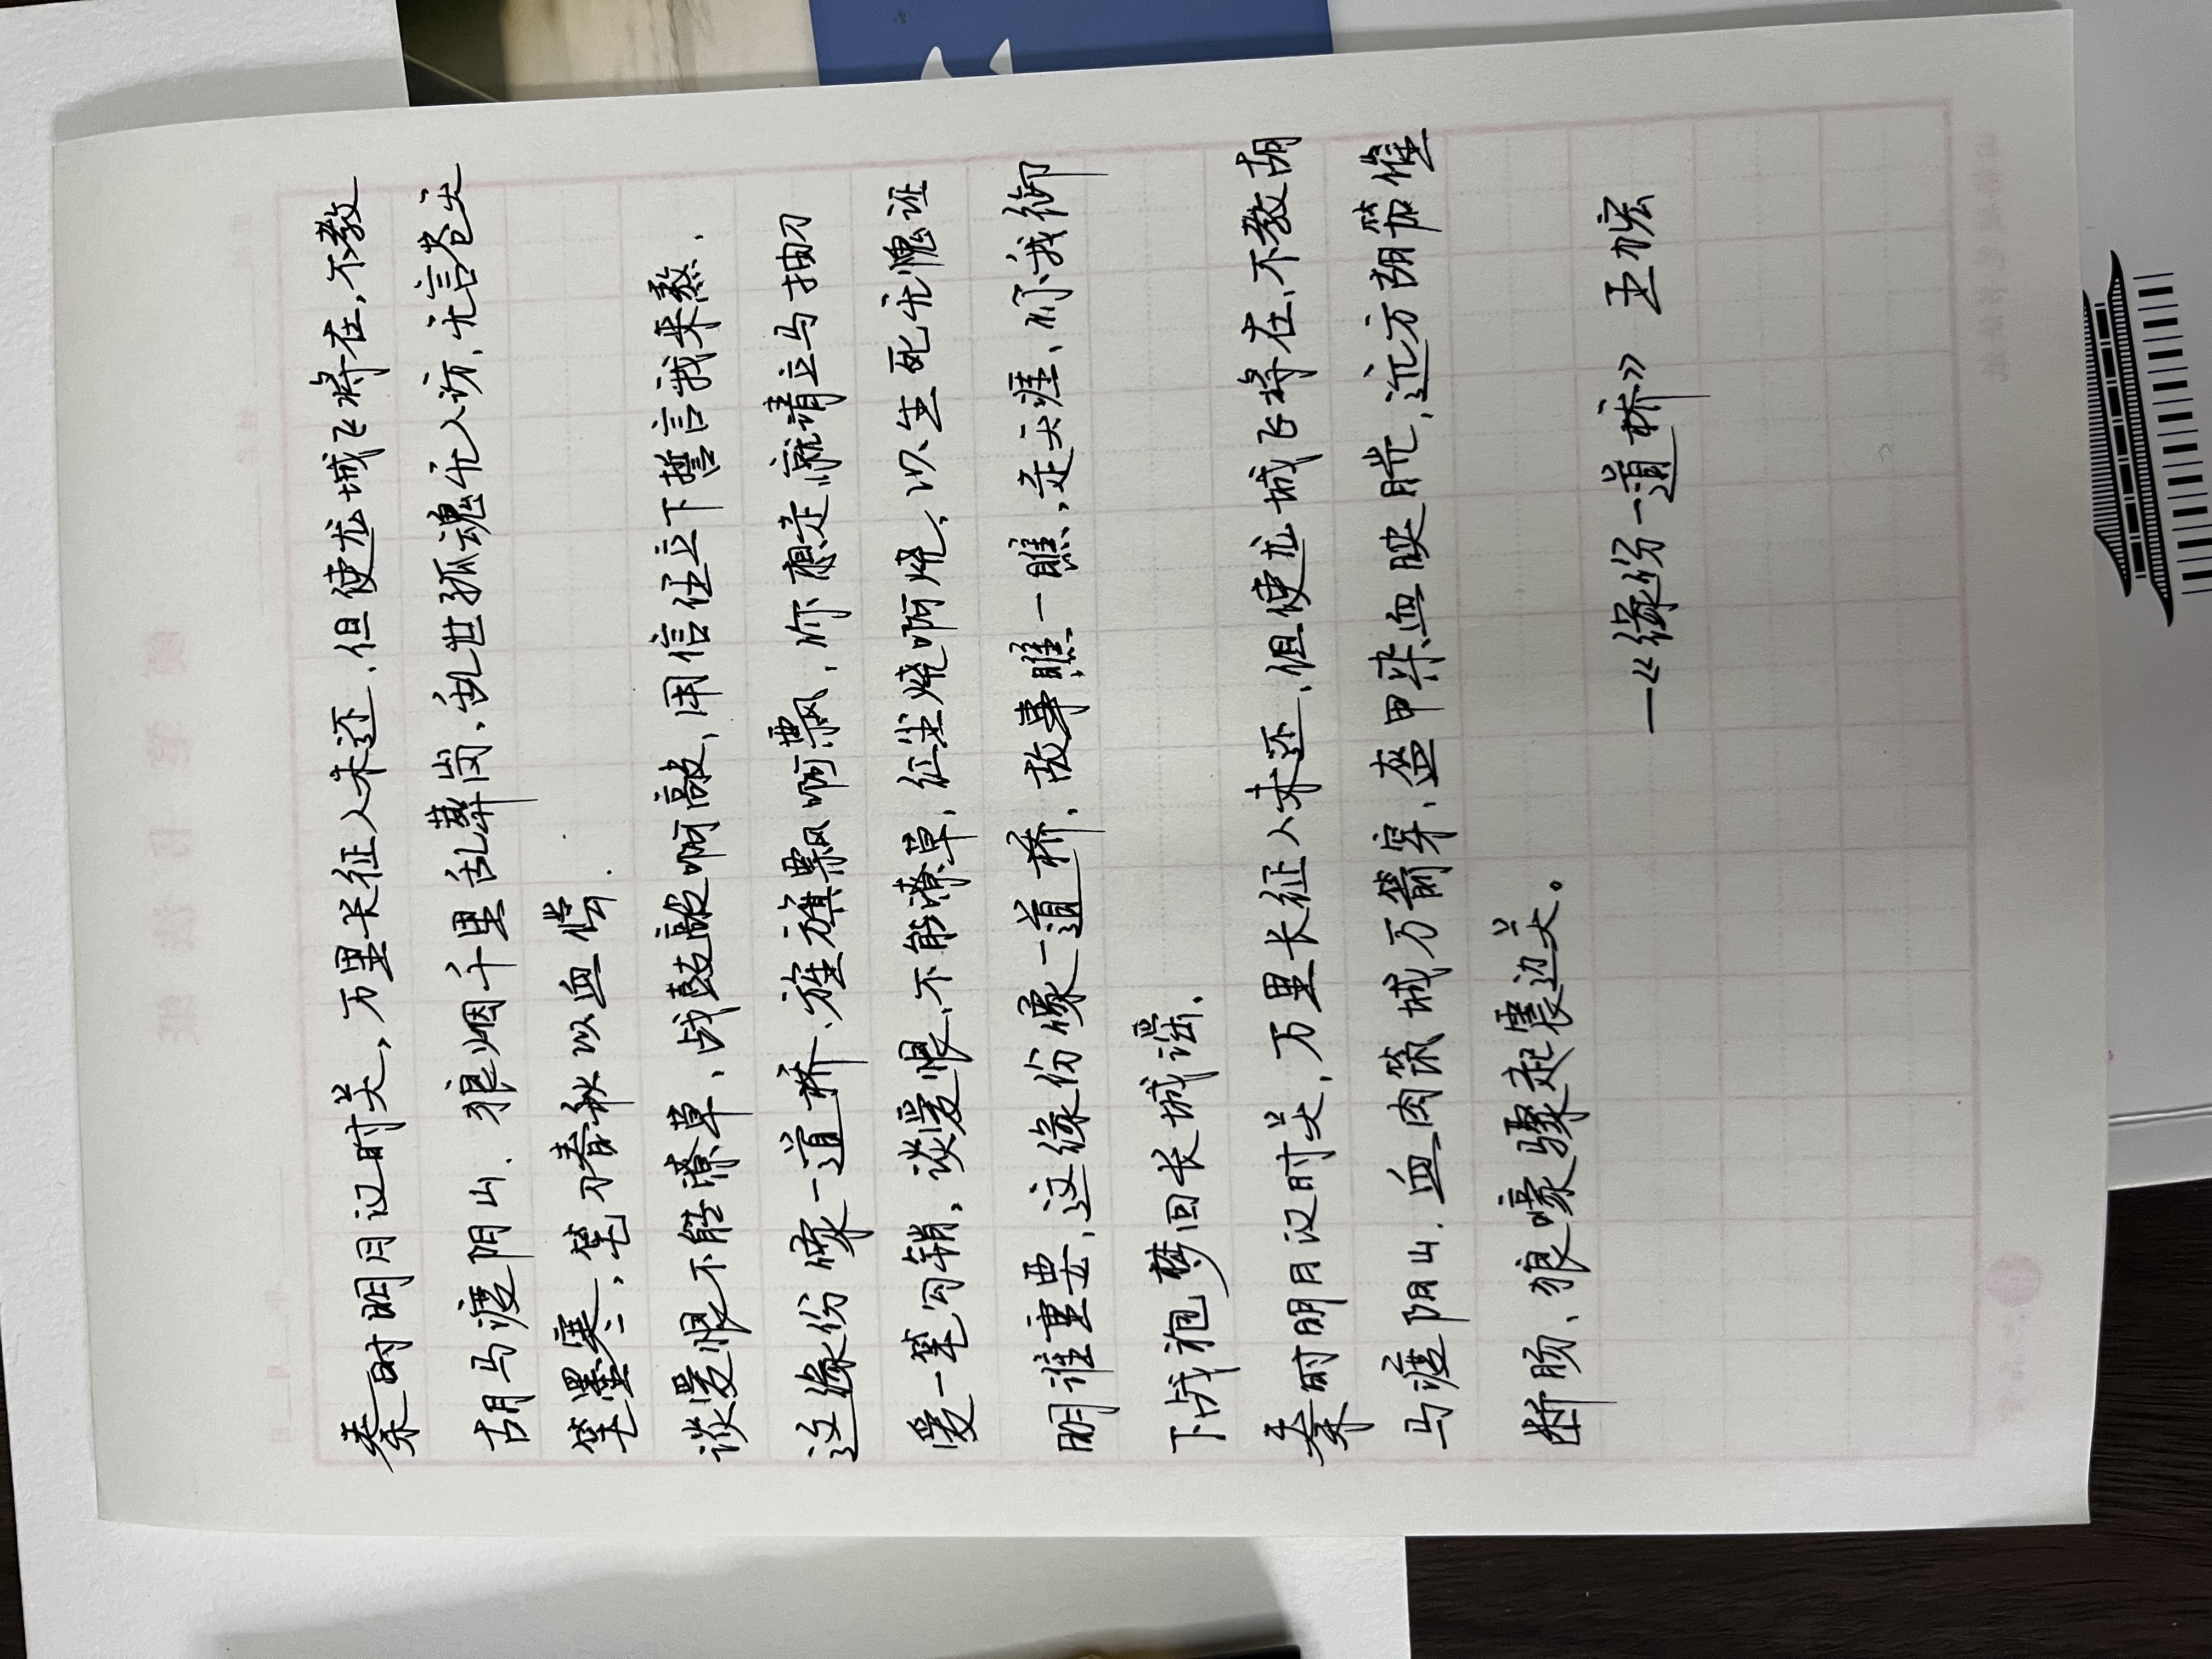 秦时明月汉时关，万里长征人未还，但使龙城飞将在，不教
胡马渡阴山，狼烟千里乱葬岗，乱世孤魂无人访，无言苍天
笔墨寒，笔刀春秋以血偿.
谈爱恨不能潦草、战鼓敲啊敲，用信任立下誓言我来熬.
这缘份像一道桥、旌旗飘啊飘，你想走就请立马抽刀
爱一笔勾销，谈爱恨、不能潦草，征尘烧啊烧，以生死无愧证
明谁重要，这缘份像一道桥，故事瞧一瞧，走天涯、你我卸
下战袍梦回长城谣.
秦时明月汉时关，万里长征人未还，但使龙城飞将在、不教胡
马渡阴山，血肉筑城万箭穿，盔甲染血映月光，远方胡笳催
断肠、狼嚎骤起震边关。
—《缘份一道桥》 王力宏